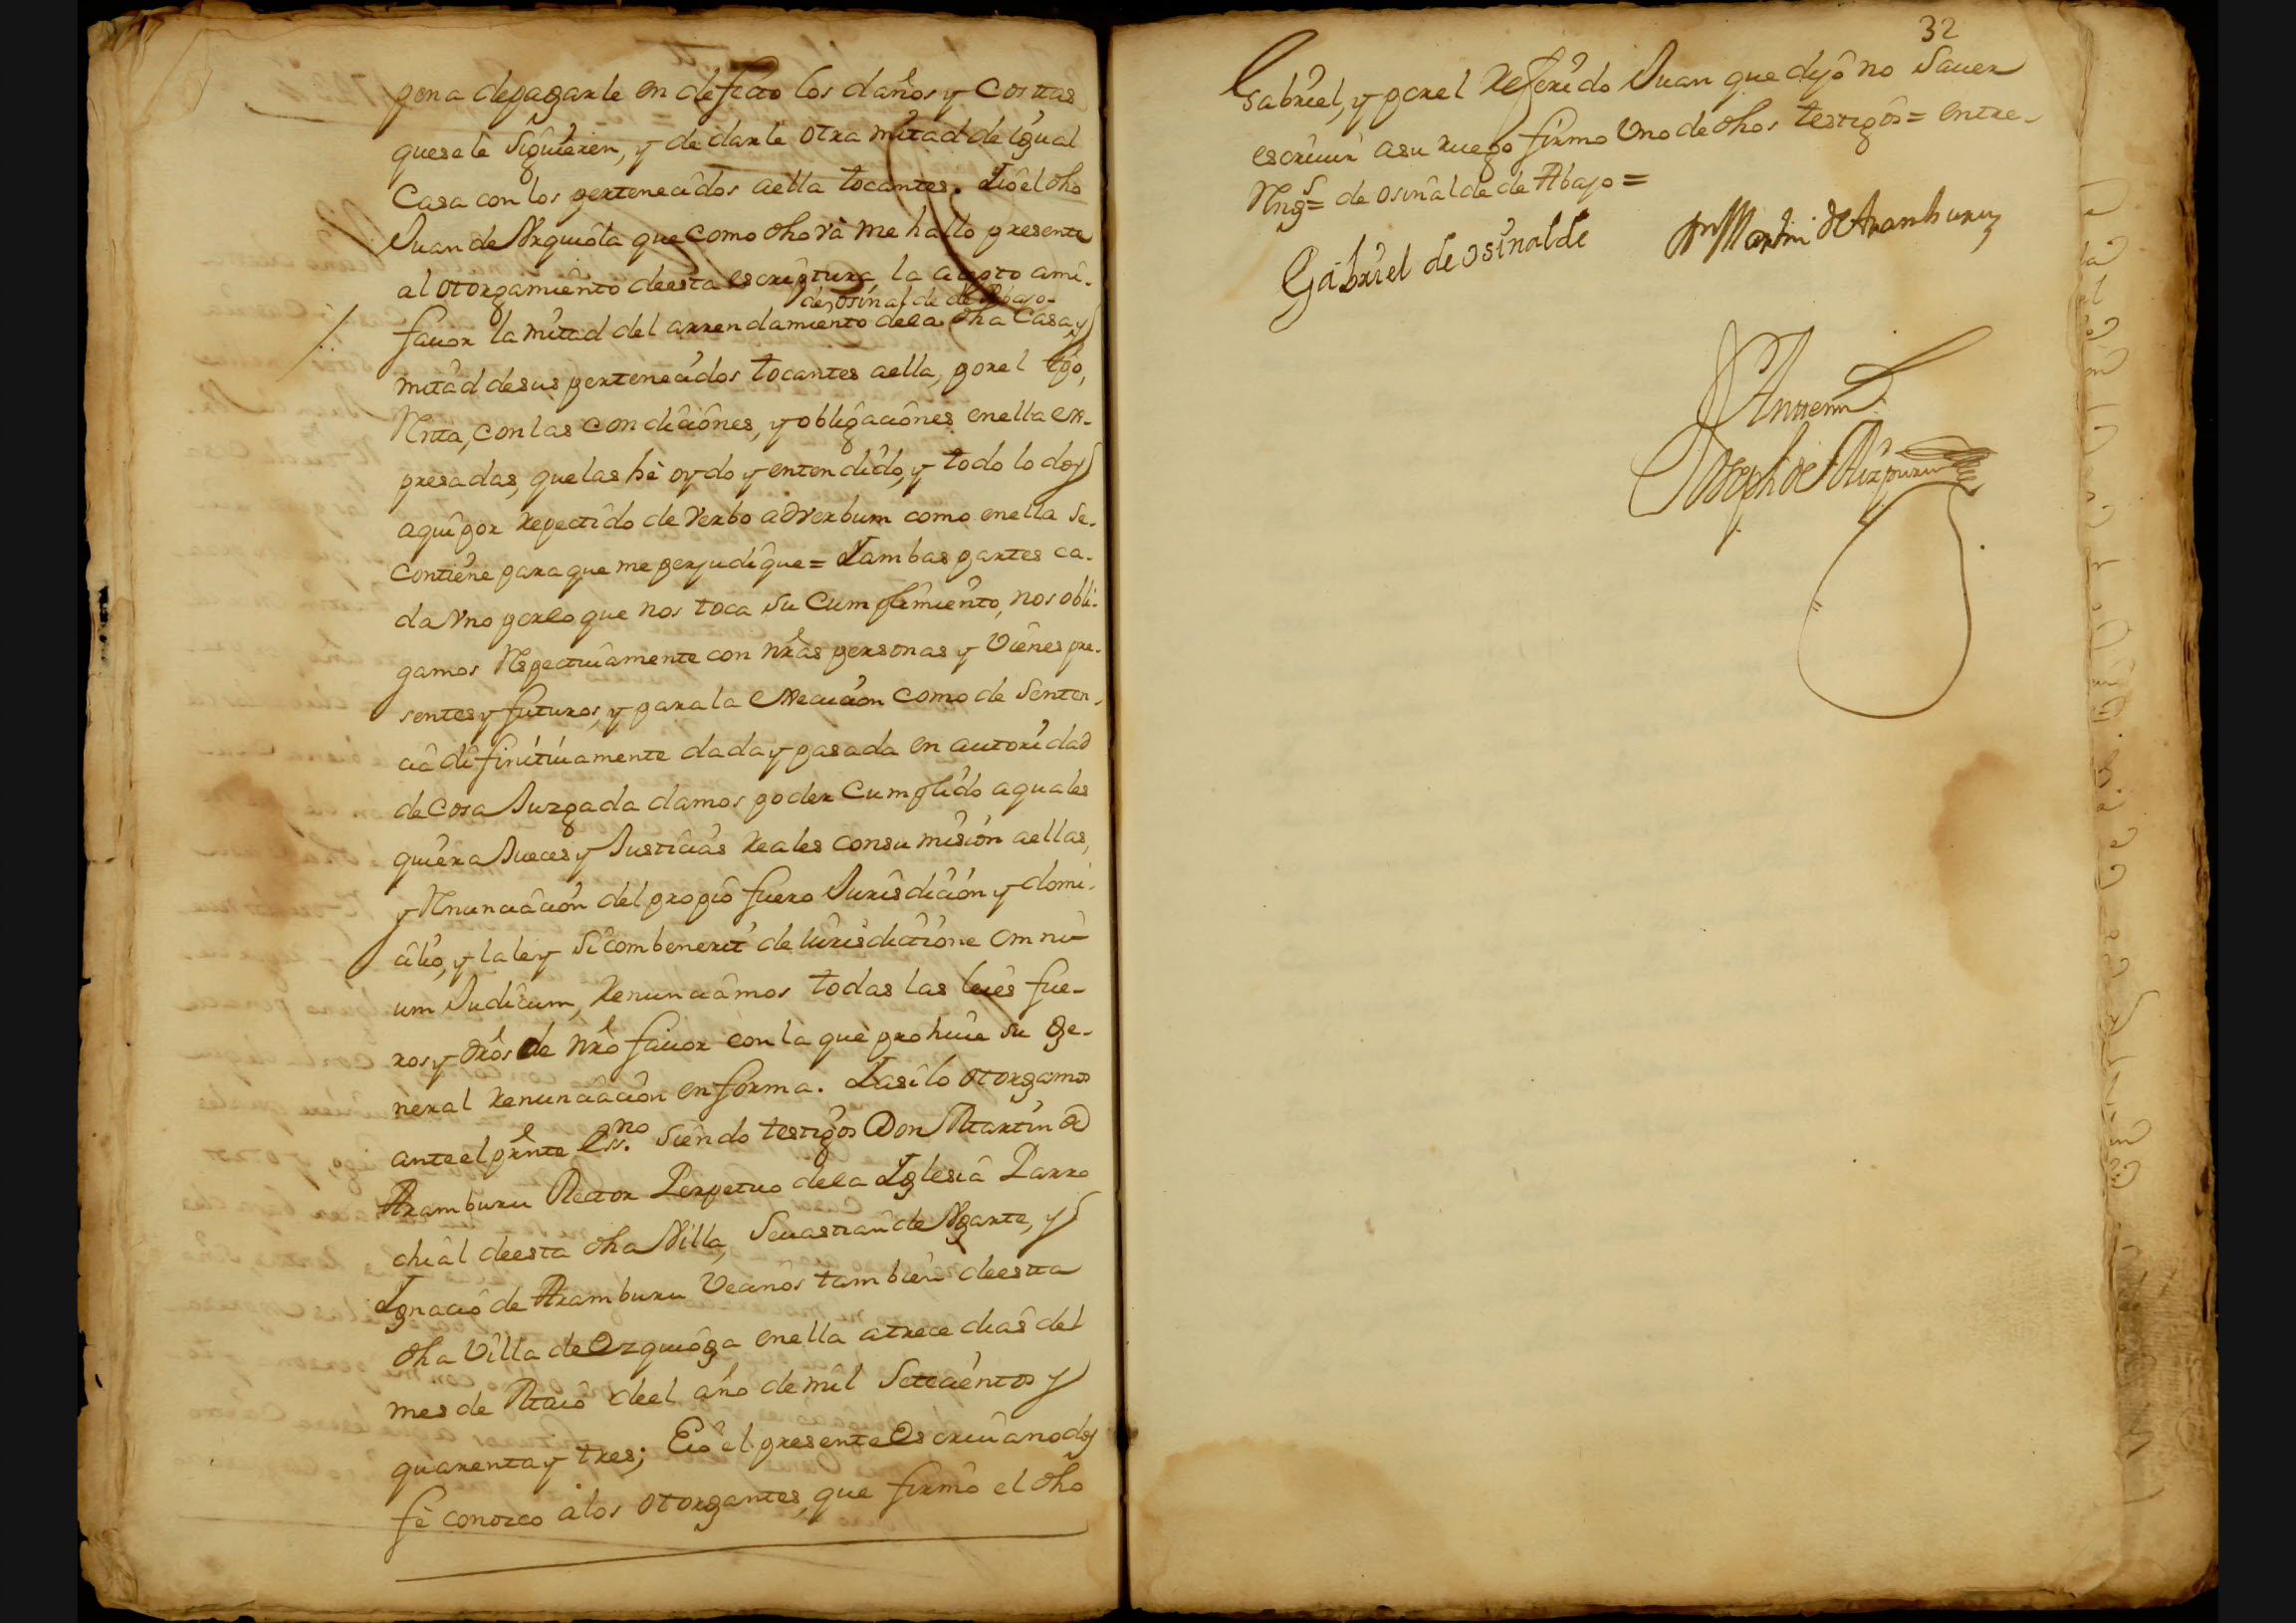 pena depagarle en defecto los daños y costtas
quesele siguieren, y de darle otra mitad de igual
Casa con los pertenecidos aella tocantes. Lio el dho
Juan de Urquiola que como dho va me hallo presente
al otorgamiento deesta escriptura, la acepto ami-
de osinalde de Abajo-
fauor la mitad del arrendamiento dela dha Casa, y
mitad desus pertenecidos tocantes aella, porel tpo,
Rntta, con las condiciones, y obligaciones enella ex-
presadas, quelas hè oydo y entendido, y todo lo doy
aqui por repectido de verbo adverbum como enella se-
contiene para que me perjudique = Lambas partes ca-
da vno porlo que nos toca su Cumplimiento, nos obli-
gamos Rspectiuamente con nrãs personas y Vienes pre-
sentes y futuros, y para la execucion como de senten-
cia difinitiuamente dada y pasada en autoridad
de cosa Juzgada damos poder Cumplido aquales
quiera Jueces y Justicias reales consu mision aellas,
y Rnunciacion del propio fuero Jurisdicion y domi-
cilio, y la ley si combenerit de iurisdictione omni-
um Judicum, renunciamos todas las leies fue-
ros y drõs de nrõ fauor con la que prohiue su ge-
neral renunciacion en forma. Lasilo otorgamos
ante el prnte Essno. siendo testigos Don Martin de
Aramburu Rector Perpetuo dela Iglesia Parro
chial deesta dha Villa, Seuastian de Ugarte, y
Ignacio de Aramburu Vecinos tambien deestta
dha Villa de Ezquioga enella atrece dias del
mes de Maio deel año de mil Setecientos y
quarenta y tres; Eio el presente Escriuano doy
fè conozco alos otorgantes, que firmò el dho
32
Gabriel, y porel referido Juan que dijò no sauer
escriuir asu ruego firmo Vno de dhos testigos = entre-
Rngs = de osinalde de Abajo =
Gabriel de osinalde Dn Martin de Aramburu
Anttemi
Joseph de Aizpuru